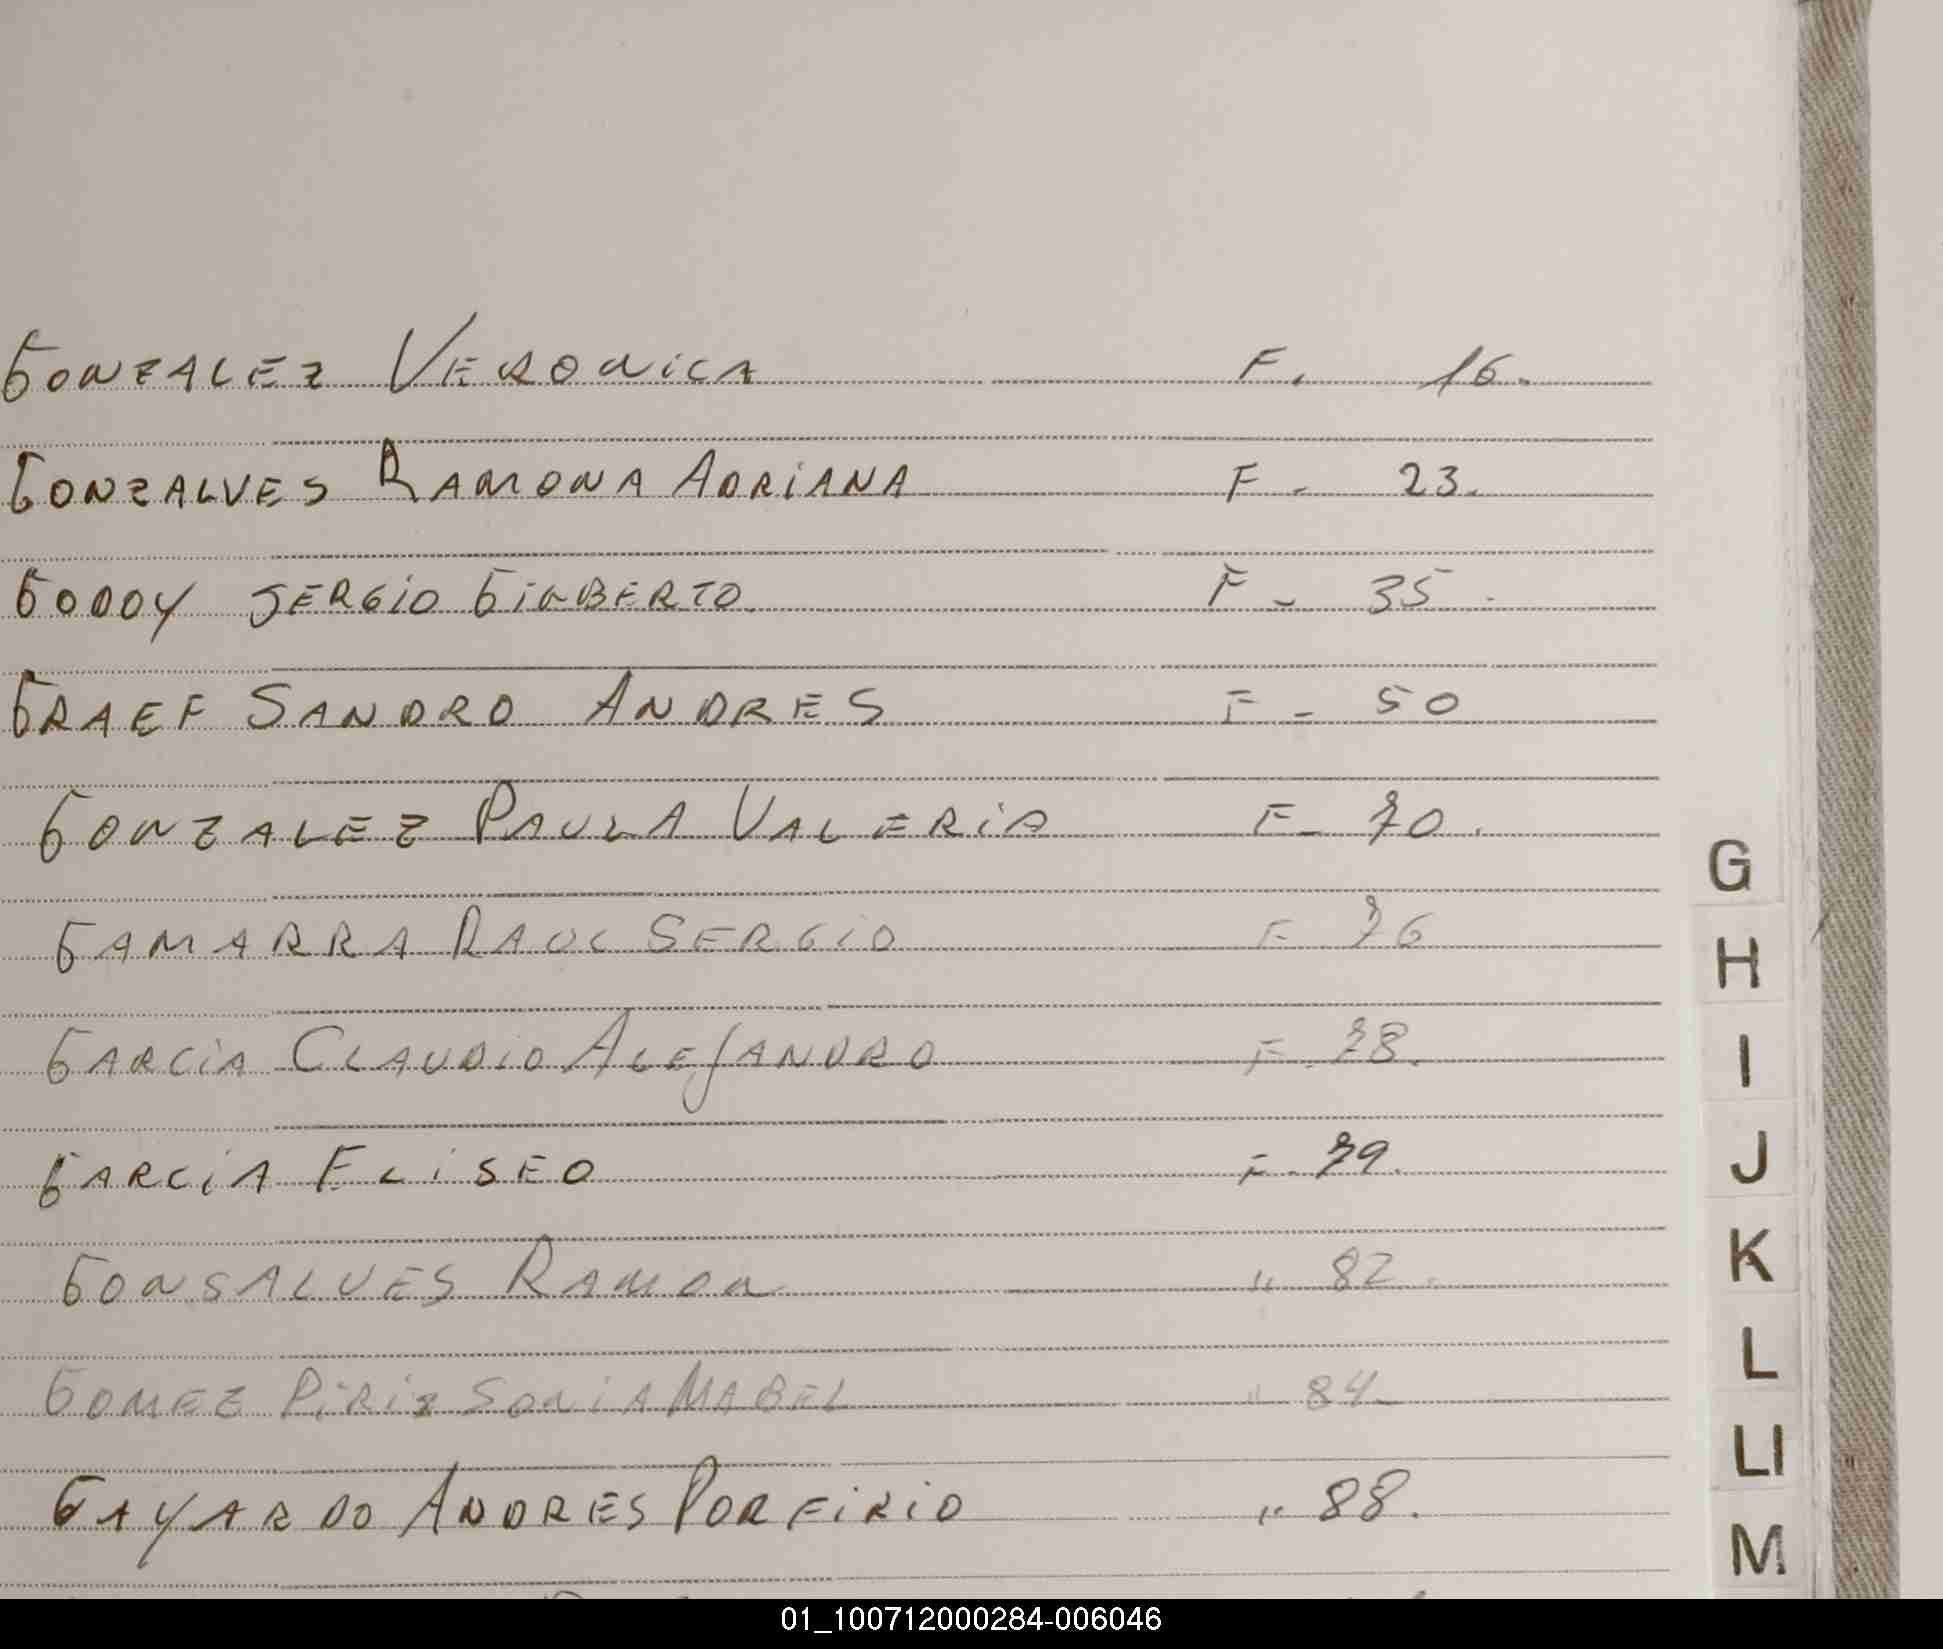 GONZALEZ VERONICA F. 16.
GONZALVES RAMONA ADRIANA F - 23.
GODOY SERGIO GILBERTO. F - 35.
GRAEF SANDRO ANDRES F - 50
GONZALEZ PAULA VALERIA F - 70.
GAMARRA RAUL SERGIO F 76
GARCIA CLAUDIO ALEJANDRO F. 78.
GARCIA ELISEO F. 79.
GONSALVES RAMON " 82.
GOMEZ PIRIZ SONIA MABEL " 84
GAYARDO ANDRES PORFIRIO " 88.
G
H
I
J
K
L
LI
M
01_100712000284-006046